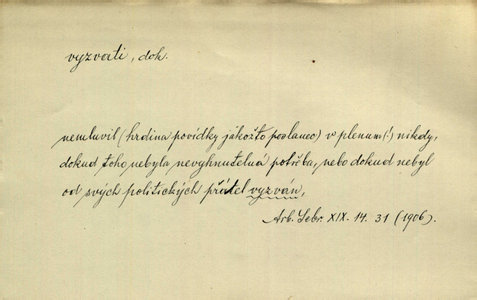 vyzvati, dok.
nemluvil (hrdina povídky jakožto poslanec) v plenum (!) nikdy,
dokud toho nebyla nevyhnutelná potřeba, nebo dokud nebyl
od svých politických přátel vyzván,
Arb. Sebr. XIX. 14. 31 (1906).